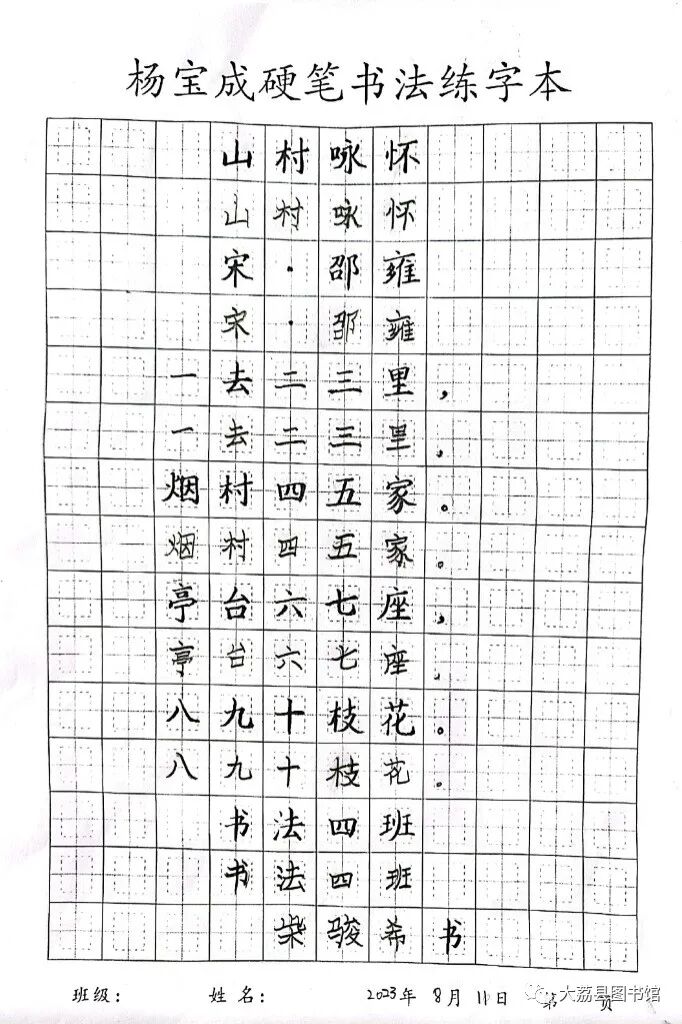 杨宝成硬笔书法练字本
山村咏怀
山村咏怀
宋·邵雍
宋·邵雍
一去二三里，
一去二三里，
烟村四五家。
烟村四五家。
亭台六七座，
亭台六七座，
八九十枝花。
八九十枝花。
书法四班
书法四班
柴骏希书
班级： 姓名： 2023年8月11日 第 页
大荔县图书馆